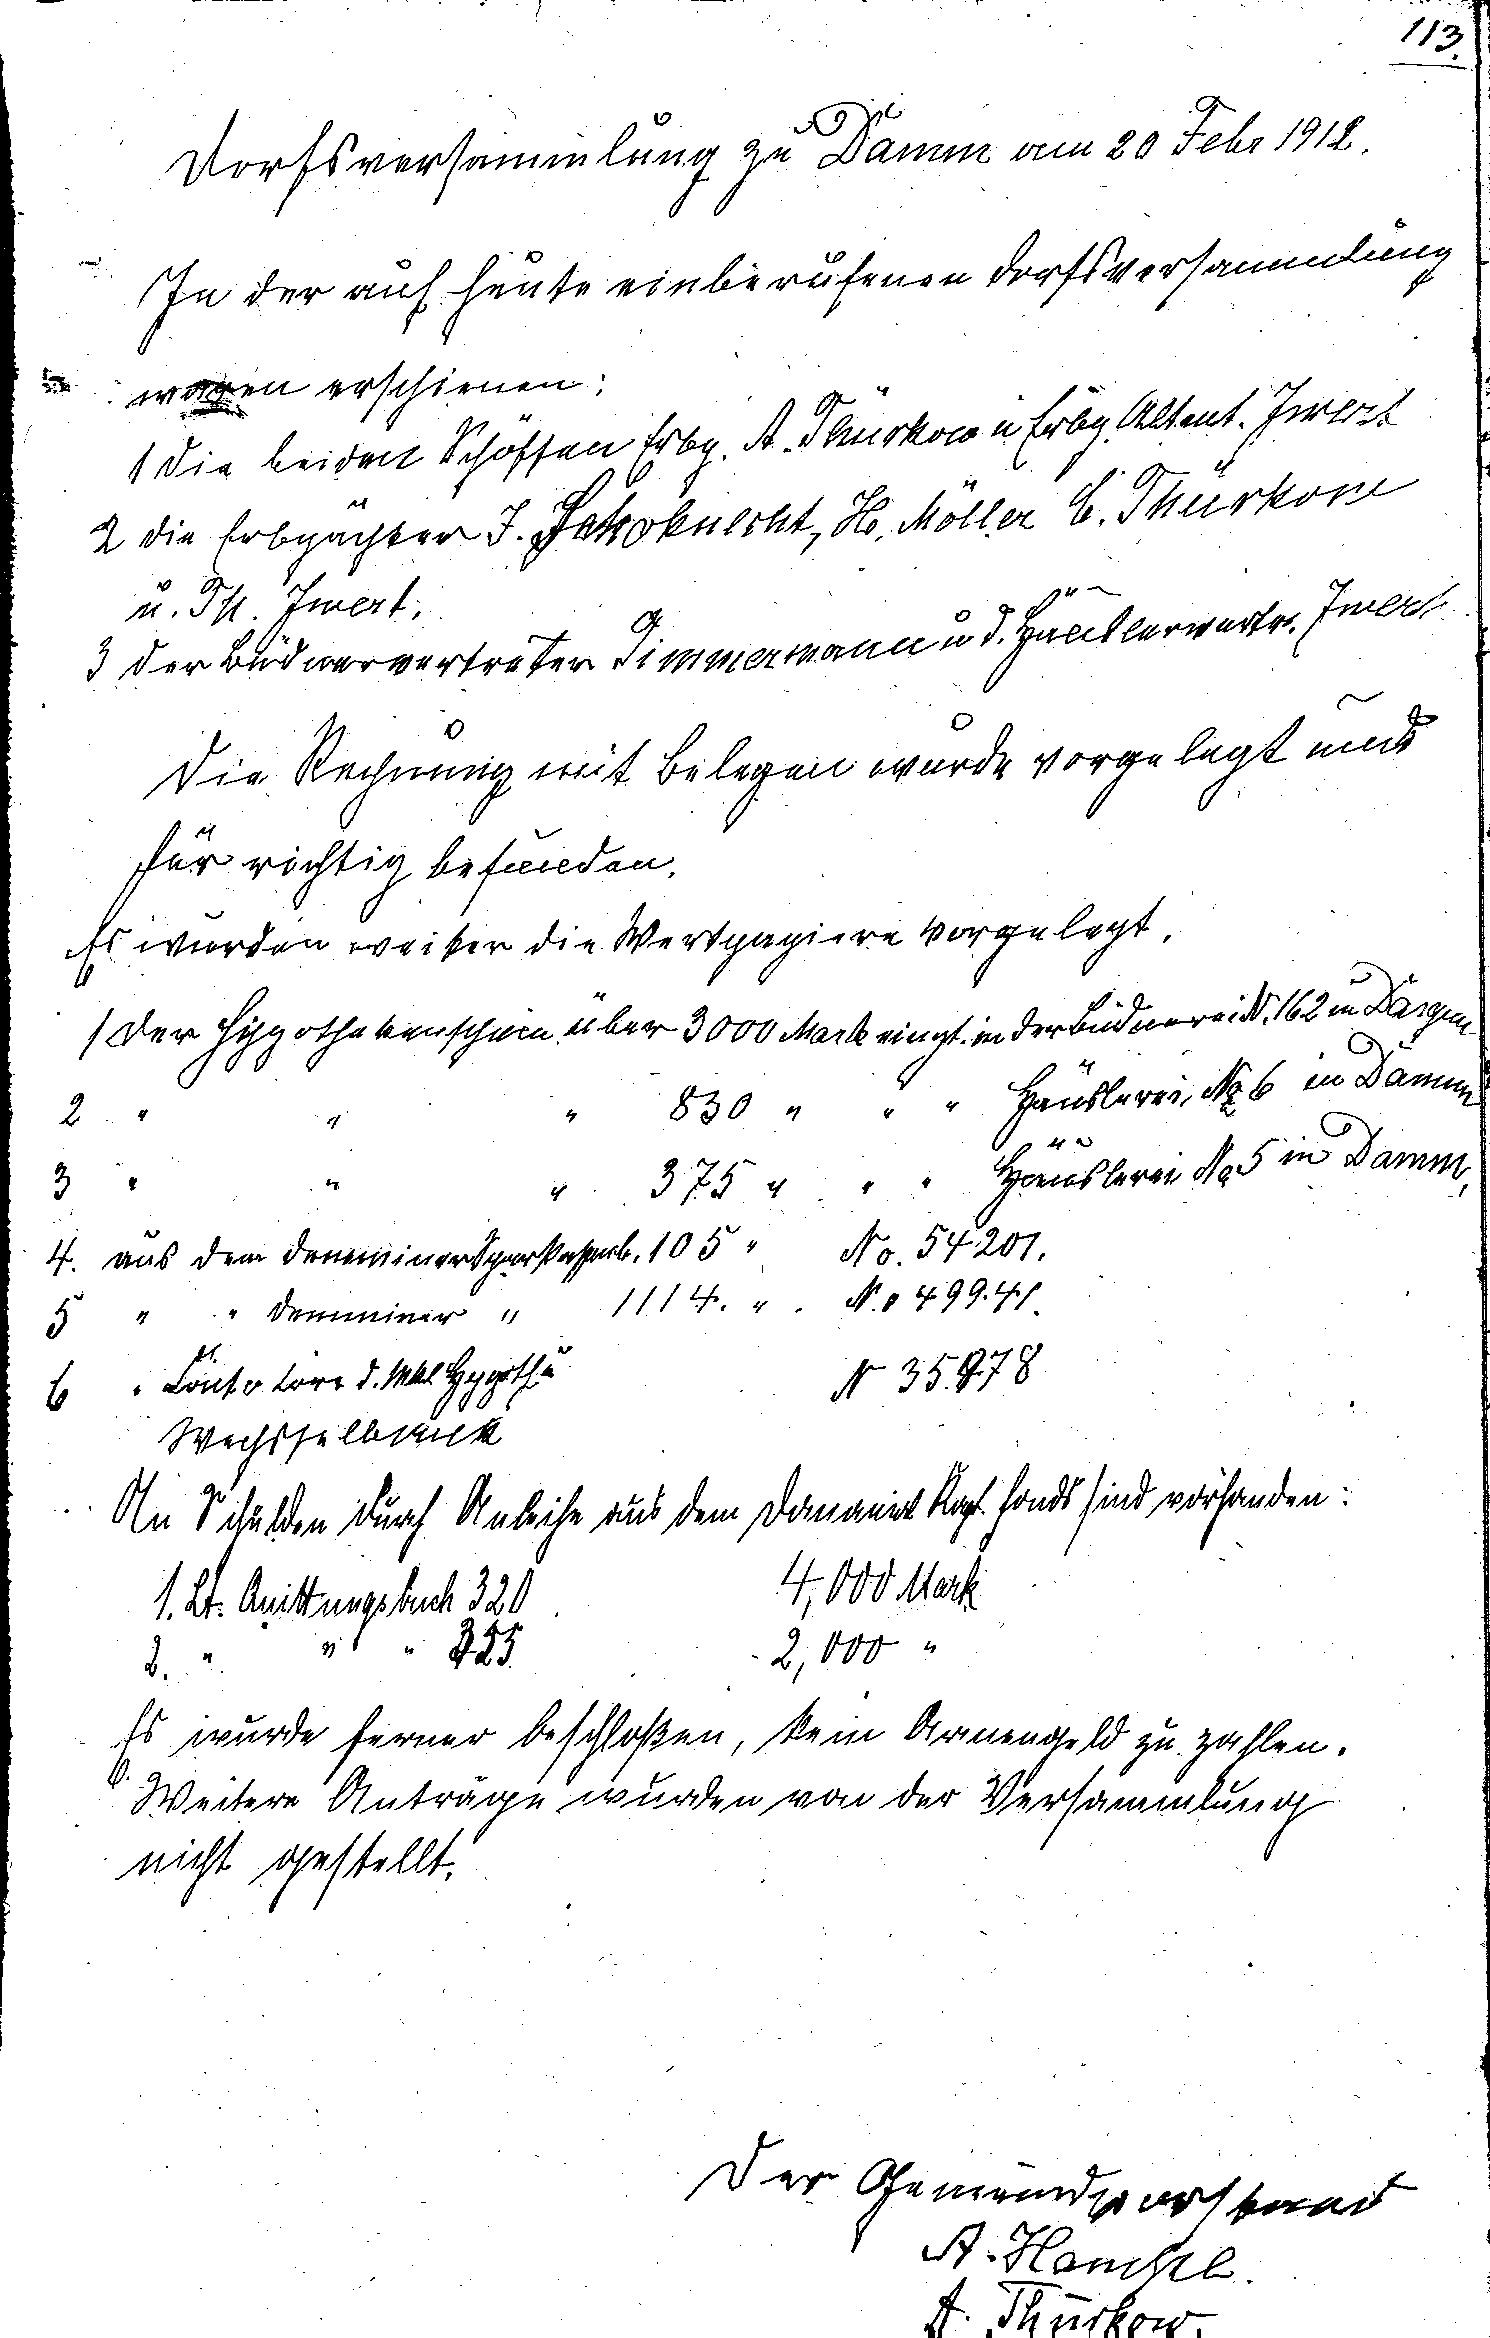 113.
Dorfsversammlung zu Damm am 20 Febr 1912.
In der auf heute einberufenen Dorfsversammlung
waren erschienen:
1 die beiden Schöffen Erbp. A. Thürkow u Erbp. Altent. Iwert
2 die Erbpächter J. Hakoknecht, H. Möller C. Thürkow
u. Th. Iwert.
3 der Büdnervertreter Timmermann u d. Häuslervertr. Iwert
Die Rechnung mit Belegen wurde vorgelegt und
für richtig befunden.
Es wurden weiter die Wertpapiere vorgelegt.
1 der Hypothekenschein über 3000 Mark eingt. in der Büdnerei N. 162 in Dargun
2 " " " 830 " " " Häuslerei No 6 in Damm
3 " " " 375 " " " Häuslerei No 5 in Damm,
4. aus dem Demminer Sparkassenb. 105 " No. 54201.
5 " " Demminer " 1114. " . No 499.41.
6 " Conto d. Mkl Hypoth u N 35.978
Wechsselbank
An Schulden durch Anleihe aus dem Domanial Kap. fonds sind vorhanden:
1. Lt. Quittungsbuch 320 4,000 Mark
2. " " " 325 2,000 "
Es wurde ferner beschloßen, kein Armengeld zu zahlen.
Weitere Anträge wurden von der Versammlung
nicht gestellt.
Der Gemeindevorstand
A.
A. Thürkow.